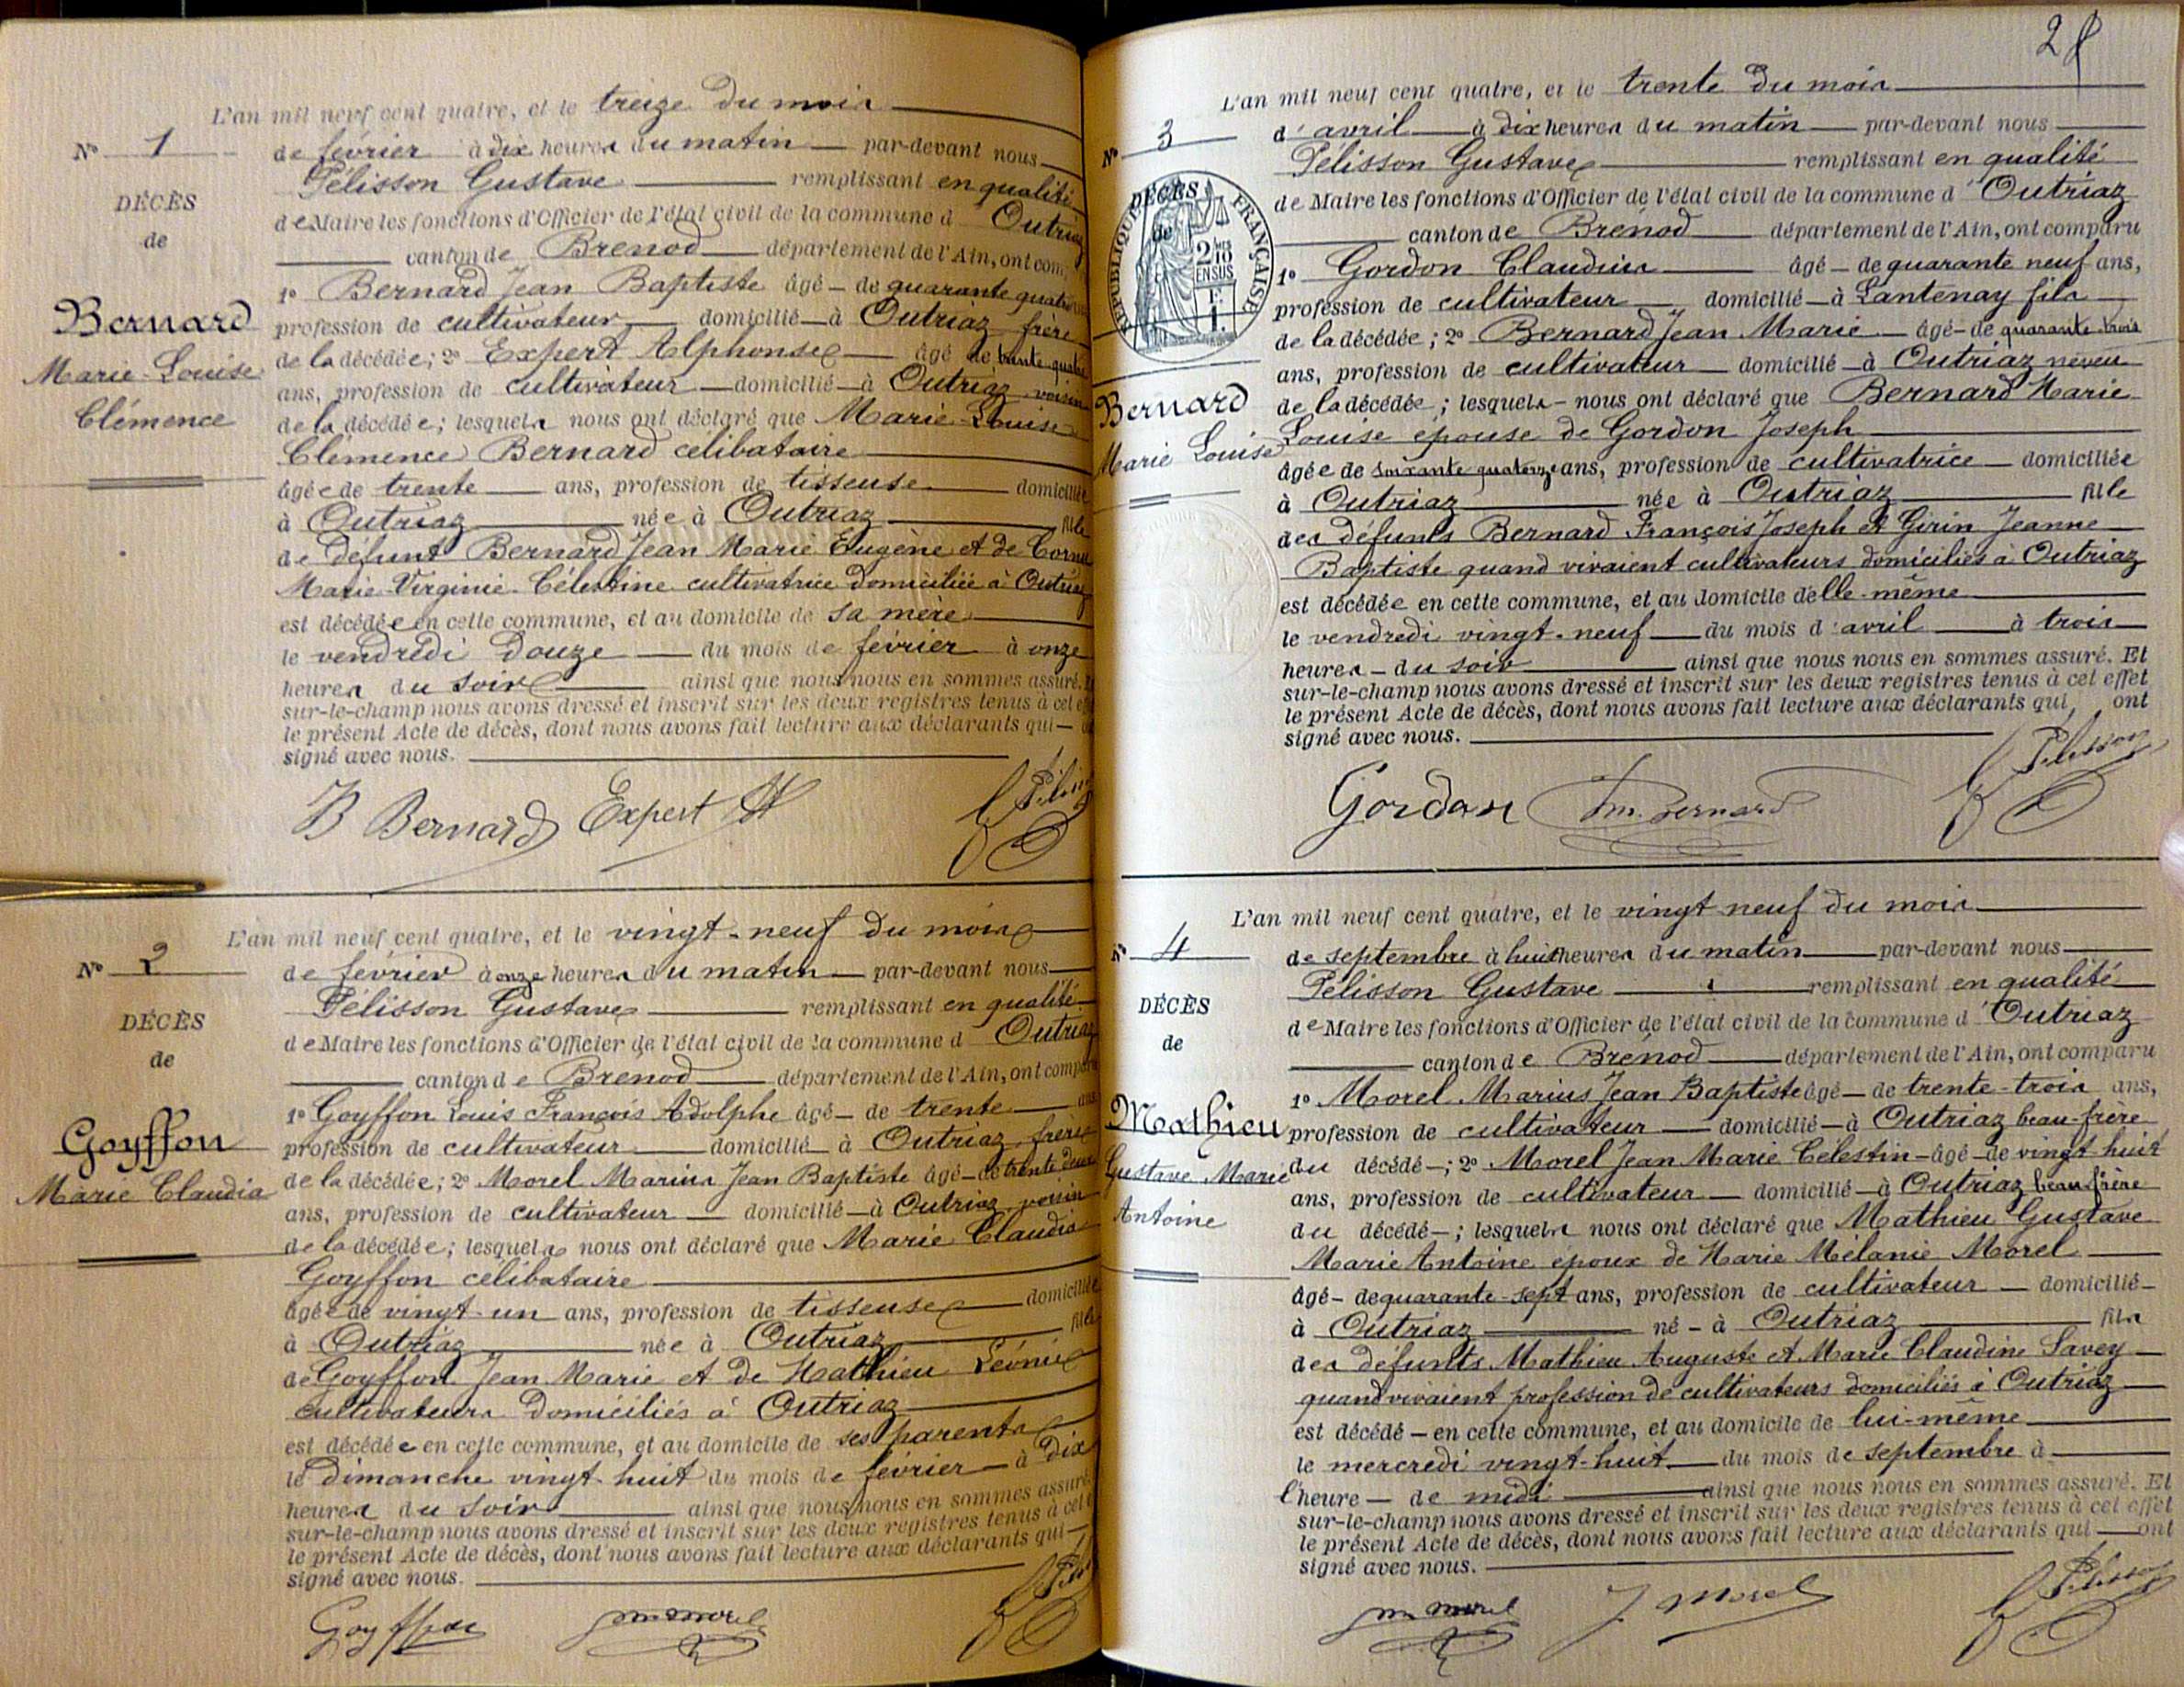 L'an mil neuf cent quatre, et le treize du mois
N° 1
de février à dix heures du matin par-devant nous
Pélisson Gustave remplissant en qualité
DÉCÈS
de Maire les fonctions d'Officier de l'état civil de la commune d Outriaz
de
canton de Brenod département de l'Ain, ont com
1° Bernard Jean Baptiste âgé de quarante quatre
Bernard
profession de cultivateur domicilié à Outriaz frère
de la décédée; 2° Expert Alphonse âgé de trente-quatre
Marie-Louise
ans, profession de cultivateur domicilié à Outriaz voisin
Clémence
de la décédée; lesquels nous ont déclaré que Marie-Louise
Clémence Bernard célibataire
âgée de trente ans, profession de tisseuse domiciliée
à Outriaz née à Outriaz fille
de défunt Bernard Jean Marie Eugène et de Cornu
Marie-Virginie-Célestine cultivatrice domiciliée à Outriaz
est décédée en cette commune, et au domicile de sa mère
le vendredi douze du mois de février à onze
heures du soir ainsi que nous nous en sommes assuré.
sur-le-champ nous avons dressé et inscrit sur les deux registres tenus à cet
le présent Acte de décès, dont nous avons fait lecture aux déclarants qui
signé avec nous.
B Bernard Expert A
N° 2
L'an mil neuf cent quatre, et le vingt-neuf du mois
de février à onze heures du matin par-devant nous
Pélisson Gustave remplissant en qualité
DÉCÈS
de Maire les fonctions d'Officier de l'état civil de la commune d Outriaz
de
canton de Brenod département de l'Ain, ont comparu
1° Goyffon Louis François Adolphe âgé de trente ans
Goyffon
profession de cultivateur domicilié à Outriaz frère
Marie Claudia
de la décédée; 2° Morel Marius Jean Baptiste âgé de trente deux
ans, profession de cultivateur domicilié à Outriaz voisin
de la décédée; lesquels nous ont déclaré que Marie Claudia
Goyffon célibataire
âgée de vingt-un ans, profession de tisseuse domiciliée
à Outriaz née à Outriaz fille
de Goyffon Jean Marie et de Mathieu Léonie
cultivateurs domiciliés à Outriaz
est décédée en cette commune, et au domicile de ses parents
le dimanche vingt-huit du mois de février à dix
heures du soir ainsi que nous nous en sommes assuré
sur-le-champ nous avons dressé et inscrit sur les deux registres tenus à cet
le présent Acte de décès, dont nous avons fait lecture aux déclarants qui
signé avec nous.
Goyffon m morel
28
L'an mil neuf cent quatre, et le trente du mois
N° 3
d'avril à dix heures du matin par-devant nous
Pélisson Gustave remplissant en qualité
DÉCÈS
de
RÉPUBLIQUE FRANÇAISE
2/10
EN SUS
F.
1.
de Maire les fonctions d'Officier de l'état civil de la commune d'Outriaz
canton de Brénod département de l'Ain, ont comparu
1° Gordon Claudius âgé de quarante neuf ans,
profession de cultivateur domicilié à Lantenay fils
de la décédée; 2° Bernard Jean Marie âgé de quarante-trois
ans, profession de cultivateur domicilié à Outriaz neveu
Bernard
de la décédée; lesquels nous ont déclaré que Bernard Marie
Marie Louise
Louise épouse de Gordon Joseph
âgée de soixante quatorze ans, profession de cultivatrice domiciliée
à Outriaz née à Outriaz fille
des défunts Bernard François Joseph et Girin Jeanne
Baptiste quand vivaient cultivateurs domiciliés à Outriaz
est décédée en cette commune, et au domicile d'elle-même
le vendredi vingt-neuf du mois d'avril à trois
heures du soir ainsi que nous nous en sommes assuré. Et
sur-le-champ nous avons dressé et inscrit sur les deux registres tenus à cet effet
le présent Acte de décès, dont nous avons fait lecture aux déclarants qui ont
signé avec nous.
Gordon Jm. Bernard Pélisson
L'an mil neuf cent quatre, et le vingt neuf du mois
N° 4
de septembre à huit heures du matin par-devant nous
Pélisson Gustave remplissant en qualité
DÉCÈS
de Maire les fonctions d'Officier de l'état civil de la commune d'Outriaz
de
canton de Brénod département de l'Ain, ont comparu
1° Morel Marius Jean Baptiste âgé de trente-trois ans,
Mathieu
profession de cultivateur domicilié à Outriaz beau-frère
Gustave Marie
du décédé; 2° Morel Jean Marie Célestin âgé de vingt-huit
ans, profession de cultivateur domicilié à Outriaz beau frère
Antoine
du décédé; lesquels nous ont déclaré que Mathieu Gustave
Marie Antoine époux de Marie Mélanie Morel
âgé de quarante-sept ans, profession de cultivateur domicilié
à Outriaz né à Outriaz fils
des défunts Mathieu Auguste et Marie Claudine Savey
quand vivaient profession de cultivateurs domiciliés à Outriaz
est décédé en cette commune, et au domicile de lui-même
le mercredi vingt-huit du mois de septembre à
l'heure de midi ainsi que nous nous en sommes assuré. Et
sur-le-champ nous avons dressé et inscrit sur les deux registres tenus à cet effet
le présent Acte de décès, dont nous avons fait lecture aux déclarants qui ont
signé avec nous.
m morel J. Morel Pélisson